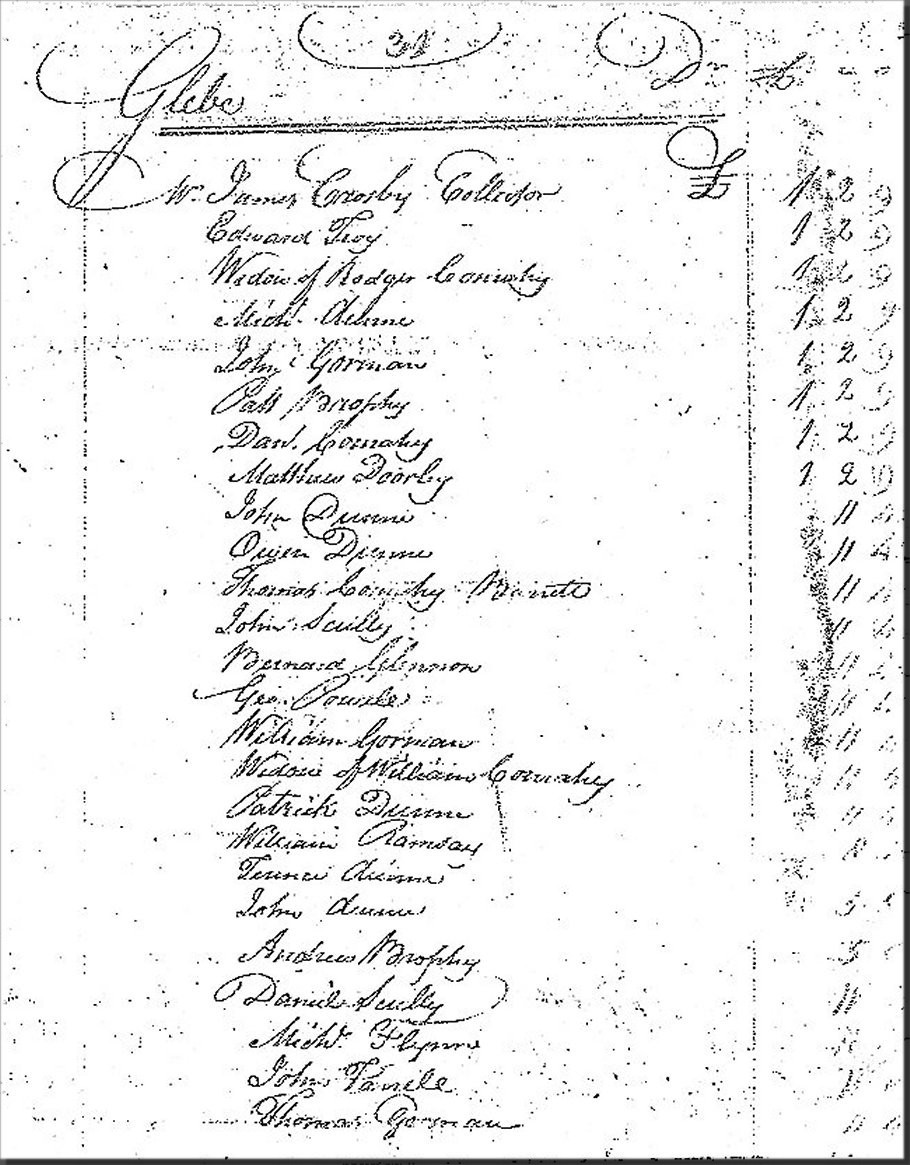 31
Glebe Dr £
Mr James Crosby Collector £ 1 2
Edward Troy 1 2
Widow of Rodger Conrahy 1 2
Michl Dunne 1 2
John Gorman 1 2
Patt Brophy 1 2
Danl. Conrahy 1 2
Matthew Doorley 1 2
John Dunne 11
Owen Dunne 11
Thomas Conrahy 11
John Scully 11
Bernard Glennon 11
Geo. 11
William Gorman 11
Widow of William Conrahy 11
Patrick Dunne 11
William Ramsay
Terence Dunne
John Dunne 5
Andrew Brophy 5
Daniel Scully 11
Michl. Flynn
John
Thomas Gorman